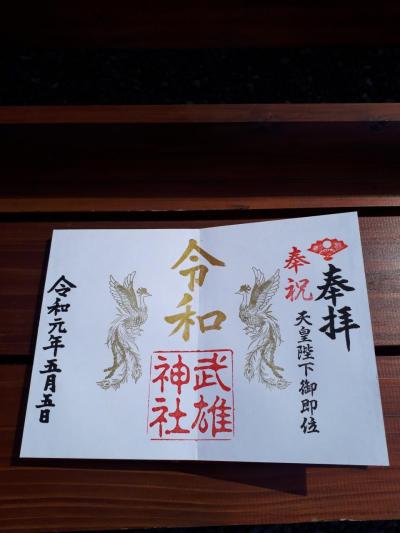 奉拝
奉祝
天皇陛下御即位
令和
武雄
神社
令和元年五月五日